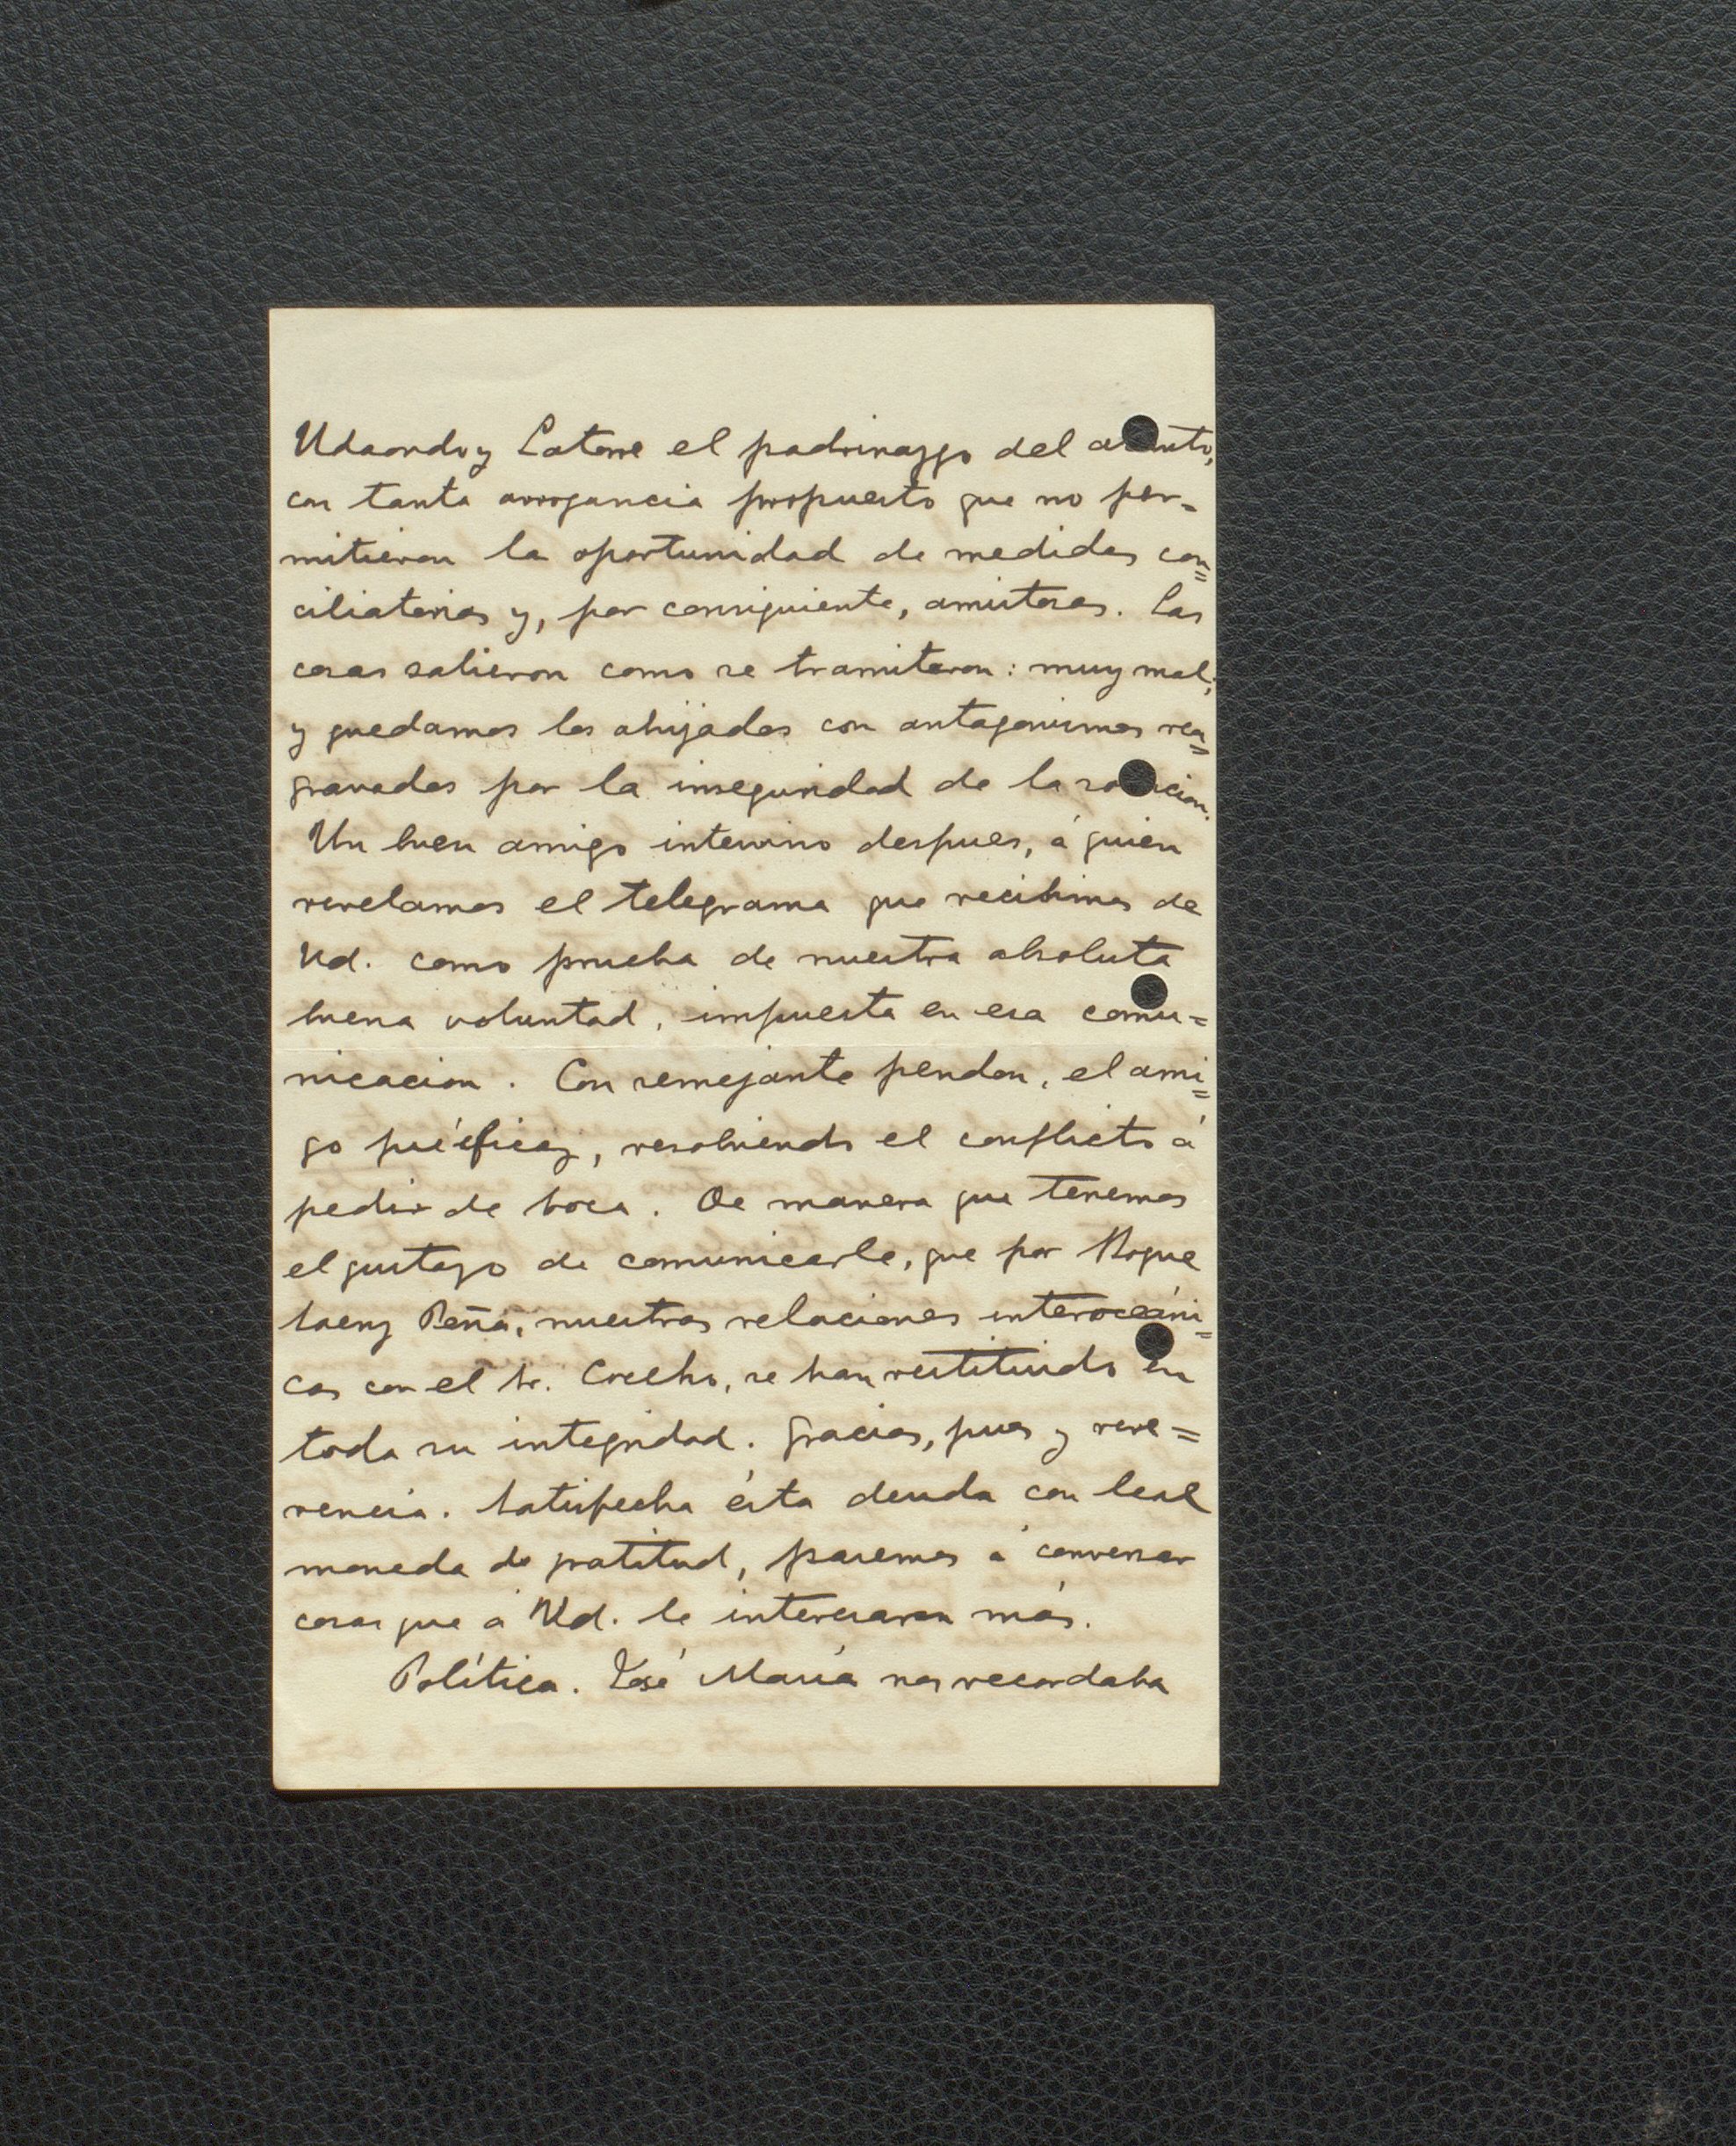 Udaondo y Latorre el padrinazgo del asunto,
con tanta arrogancia propuesto que no per=
mitieron la oportunidad de medidas con=
ciliatorias y, por consiguiente, amistosas. Las
cosas salieron como se tramitaron: muy mal;
y quedamos los ahijados con antagonismos rea=
gravados por la inseguridad de la solucion.
Un buen amigo intervino despues, á quien
revelamos el telegrama que recibimos de
Ud. como prueba de nuestra absoluta
buena voluntad, impuesta en esa comu=
nicacion. Con semejante pendon, el ami=
go fué eficaz, resolviendo el conflicto á
pedir de boca. De manera que tenemos
el gustazo de comunicarle, que por Roque
Saenz Peña, nuestras relaciones interoceáni=
cas con el Sr. Coelho, se han restituido en
toda su integridad. Gracias, pues y reve=
rencia. Satisfecha ésta deuda con leal
moneda de gratitud, pasemos á conversar
cosas que á Ud. le interesaran más.
Política. José María nos recordaba